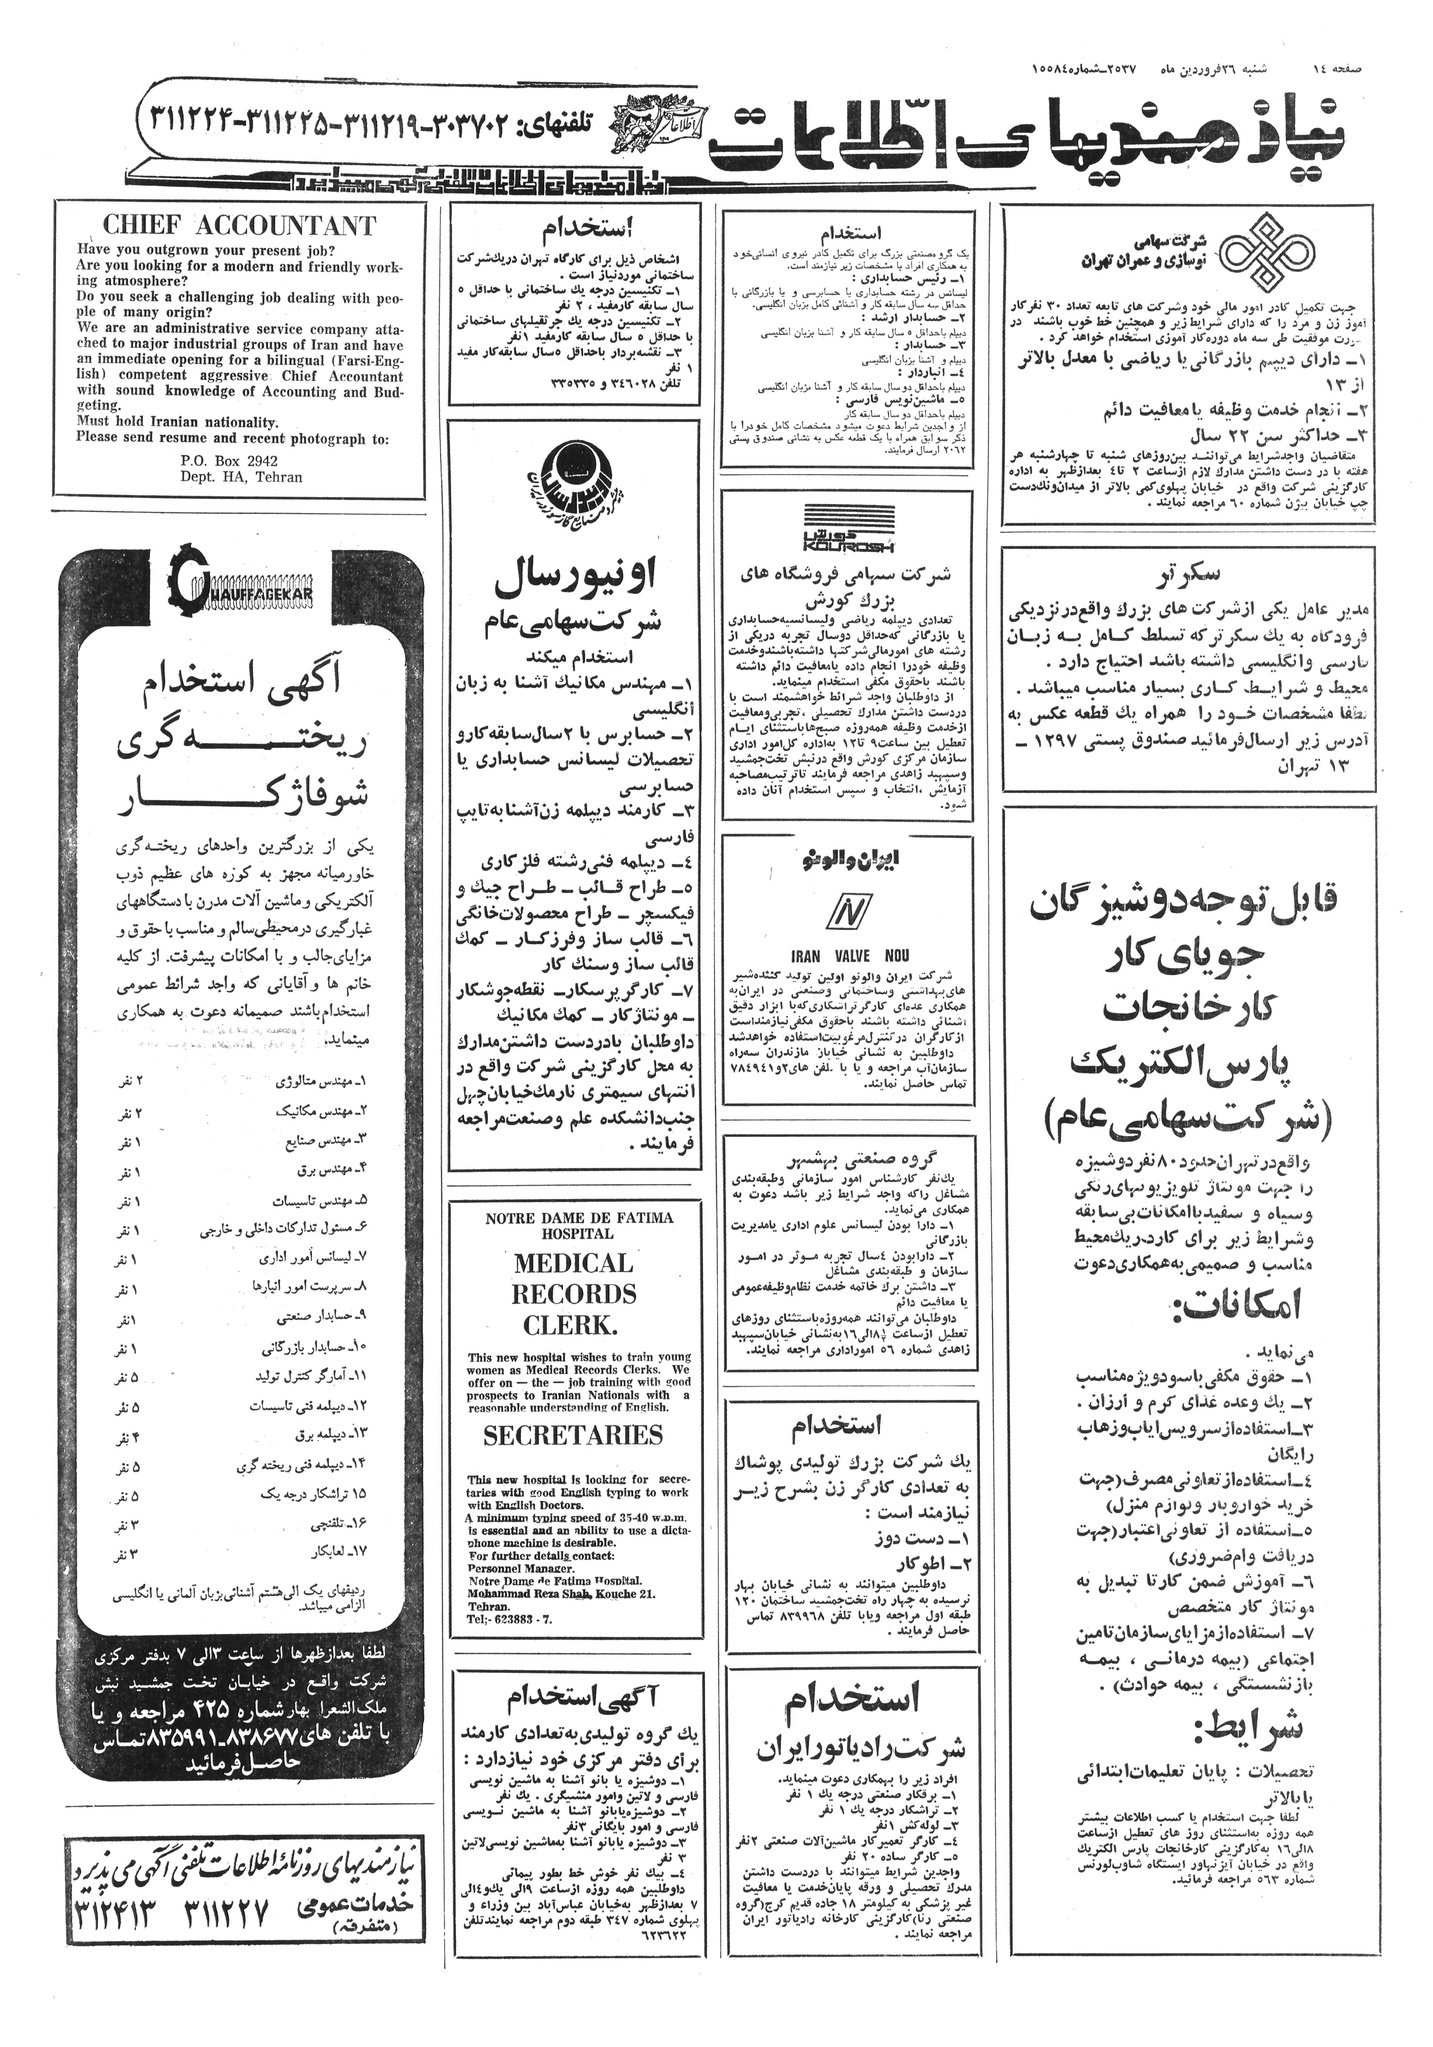 صفحه ۱۴
شنبه ۲۶ فروردین ماه ۲۵۳۷ـ شماره ۱۵۵۸۴
نیازمندیهای اطلاعات
تلفنهای: ۳۰۳۷۰۲-۳۱۱۲۱۹-۳۱۱۲۲۵-۳۱۱۲۲۴
نیازمندیهای اطلاعات تلفنی آگهی میپذیرد
شرکت سهامی
نوسازی و عمران تهران
جهت تکمیل کادر امور مالی خود وشرکت های تابعه تعداد ۳۰ نفرکار
آموز زن و مرد را که دارای شرایط زیر و همچنین خط خوب باشند در
صورت موفقیت طی سه ماه دوره کار آموزی استخدام خواهد کرد .
۱ـ دارای دیپلم بازرگانی یا ریاضی با معدل بالاتر
از ۱۳
۲ـ انجام خدمت وظیفه یا معافیت دائم
۳ـ حداکثر سن ۲۲ سال
متقاضیان واجدشرایط می‌توانند بین‌روزهای شنبه تا چهارشنبه هر
هفته با در دست داشتن مدارك لازم ازساعت ۲ تا۴ بعدازظهر به اداره
کارگزینی شرکت واقع در خیابان پهلوی‌کمی بالاتر از میدان‌ونك‌دست
چپ خیابان بیژن شماره ۶۰ مراجعه نمایند .
سکرتر
مدیر عامل یکی ازشرکت های بزرك واقع‌درنزدیکی
فرودگاه به یك سکرتر که تسلط کامل به زبان
پارسی وانگلیسی داشته باشد احتیاج دارد .
محیط و شرایط کاری بسیار مناسب میباشد .
لطفا مشخصات خود را همراه یك قطعه عکس به
آدرس زیر ارسال‌فرمائید صندوق پستی ۱۲۹۷ ـ
۱۳ تهران
قابل توجه دوشیزگان
جویای کار
کارخانجات
پارس الکتریك
(شرکت سهامی عام)
واقع در تهران حدود ۸۰ نفر دوشیزه
را جهت مونتاژ تلویزیونهای رنگی
وسیاه و سفید با امکانات بی سابقه
وشرایط زیر برای کاردریك‌محیط
مناسب و صمیمی به‌همکاری دعوت
امکانات:
می‌نماید .
۱ـ حقوق مکفی باسود‌ویژه مناسب
۲ـ یك وعده غذای گرم و ارزان .
۳ـ استفاده از سرویس ایاب‌وزهاب
رایگان
۴ـ استفاده از تعاونی مصرف (جهت
خرید خواروبار ولوازم منزل)
۵ـ استفاده از تعاونی‌اعتبار (جهت
دریافت وام‌ضروری)
۶ـ آموزش ضمن کار تا تبدیل به
مونتاژ کار متخصص
۷ـ استفاده از مزایای سازمان تامین
اجتماعی (بیمه درمانی ، بیمه
بازنشستگی ، بیمه حوادث) .
شرایط:
تحصیلات : پایان تعلیمات ابتدائی
یا بالاتر
لطفا جهت استخدام یا کسب اطلاعات بیشتر
همه روزه به‌استثنای روز های تعطیل ازساعت
۸الی۱۶ به‌کارگزینی کارخانجات پارس الکتریك
واقع در خیابان آیزنهاور ایستگاه شاوب‌لورنس
شماره ۵۶۳ مراجعه فرمائید.
استخدام
یک گروه‌صنعتی بزرگ برای تکمیل کادر نیروی انسانی‌خود
به همکاری افراد با مشخصات زیر نیازمند است.
۱ـ رئیس حسابداری :
لیسانس در رشته حسابداری یا حسابرسی و یا بازرگانی با
حداقل سه سال سابقه کار و آشنائی کامل بزبان انگلیسی.
۲ـ حسابدار ارشد :
دیپلم باحداقل ۵ سال سابقه کار و آشنا بزبان انگلیسی
۳ـ حسابدار :
دیپلم و آشنا بزبان انگلیسی
۴ـ انباردار :
دیپلم باحداقل دو سال سابقه کار و آشنا بزبان انگلیسی
۵ـ ماشین‌نویس فارسی :
دیپلم باحداقل دو سال سابقه کار
از واجدین شرایط دعوت میشود مشخصات کامل خودرا با
ذکر سوابق همراه با یک قطعه عکس به نشانی صندوق پستی
۲۰۶۲ ارسال فرمایند.
کورش
KOUROSH
شرکت سهامی فروشگاه های
بزرك کورش
تعدادی دیپلمه ریاضی ولیسانسیه‌حسابداری
یا بازرگانی که‌حداقل دوسال تجربه دریکی از
رشته های امورمالی‌شرکتها داشته‌باشندوخدمت
وظیفه خودرا انجام داده یامعافیت دائم داشته
باشند باحقوق مکفی استخدام مینماید.
از داوطلبان واجد شرائط خواهشمند است با
دردست داشتن مدارك تحصیلی ، تجربی‌ومعافیت
ازخدمت وظیفه همه‌روزه صبح‌هاباستثنای ایام
تعطیل بین ساعت۹ تا۱۲ به‌اداره کل‌امور اداری
سازمان مرکزی کورش واقع درنبش تخت‌جمشید
وسپهبد زاهدی مراجعه فرمایند تاترتیب‌مصاحبه
آزمایش ،انتخاب و سپس استخدام آنان داده
شود.
ایران والونو
IRAN VALVE NOU
شرکت ایران والونو اولین تولید کننده‌شیر
های‌بهداشتی وساختمانی وصنعتی در ایران‌به
همکاری عده‌ای کارگرتراشکاری‌که‌با ابزار دقیق
آشنائی داشته باشند باحقوق مکفی‌نیازمنداست
ازکارگران درکنترل‌مرغوبیت‌استفاده خواهدشد
داوطلبین به نشانی خیابان مازندران سه‌راه
سازمان‌آب مراجعه و یا با تلفن های۲و۷۸۴۹۴۱
تماس حاصل نمایند.
گروه صنعتی بهشهر
یك‌نفر کارشناس امور سازمانی وطبقه‌بندی
مشاغل راکه واجد شرایط زیر باشد دعوت به
همکاری می‌نماید.
۱ـ دارا بودن لیسانس علوم اداری یامدیریت
بازرگانی
۲ـ دارابودن ۴سال تجربه موثر در امور
سازمان و طبقه‌بندی مشاغل
۳ـ داشتن برك خاتمه خدمت نظام‌وظیفه‌عمومی
یا معافیت دائم
داوطلبان می‌توانند همه‌روزه باستثنای روزهای
تعطیل ازساعت ۸الی۱۶به‌نشانی خیابان‌سپهبد
زاهدی شماره ۵۶ اموراداری مراجعه نمایند.
استخدام
یك شرکت بزرك تولیدی پوشاك
به تعدادی کارگر زن بشرح زیر
نیازمند است :
۱ـ دست دوز
۲ـ اطوکار
داوطلبین میتوانند به نشانی خیابان بهار
نرسیده به چهار راه تخت‌جمشید ساختمان ۱۲۰
طبقه اول مراجعه ویابا تلفن ۸۳۹۹۶۸ تماس
حاصل فرمایند .
استخدام
شرکت رادیاتور ایران
افراد زیر را بهمکاری دعوت مینماید.
۱ـ برقکار صنعتی درجه یك ۱ نفر
۲ـ تراشکار درجه یك ۱ نفر
۳ـ لوله‌کش ۱نفر
۴ـ کارگر تعمیرکار ماشین‌آلات صنعتی ۲نفر
۵ـ کارگر ساده ۲۰ نفر
واجدین شرایط میتوانند با دردست داشتن
مدرك تحصیلی و ورقه پایان‌خدمت یا معافیت
غیر پزشکی به کیلومتر ۱۸ جاده قدیم کرج(گروه
صنعتی رنا)کارگزینی کارخانه رادیاتور ایران
مراجعه نمایند .
استخدام
اشخاص ذیل برای کارگاه تهران دریك‌شرکت
ساختمانی موردنیاز است .
۱ـ تکنیسین درجه یك ساختمانی با حداقل ۵
سال سابقه کارمفید ، ۲ نفر
۲ـ تکنیسین درجه یك جرثقیلهای ساختمانی
با حداقل ۵ سال سابقه کارمفید ۱نفر
۳ـ نقشه‌بردار باحداقل ۵سال سابقه‌کار مفید
۱ نفر
تلفن ۳۴۶۰۲۸ و ۳۳۵۳۳۵
اونیورسال
اونیورسال
شرکت سهامی عام
استخدام میکند
۱ـ مهندس مکانیك آشنا به زبان
انگلیسی
۲ـ حسابرس با ۲سال‌سابقه‌کارو
تحصیلات لیسانس حسابداری یا
حسابرسی
۳ـ کارمند دیپلمه زن‌آشنا به‌تایپ
فارسی
۴ـ دیپلمه فنی‌رشته فلزکاری
۵ـ طراح قالب ـ طراح جیك و
فیکسچر ـ طراح محصولات‌خانگی
۶ـ قالب ساز وفرزکار ـ کمك
قالب ساز وسنك کار
۷ـ کارگر پرسکار ـ نقطه‌جوشکار
ـ مونتاژکار ـ کمك مکانیك
داوطلبان بادردست داشتن‌مدارك
به محل کارگزینی شرکت واقع در
انتهای سیمتری نارمك‌خیابان‌چهل
جنب‌دانشکده علم وصنعت‌مراجعه
فرمایند .
NOTRE DAME DE FATIMA
HOSPITAL
MEDICAL
RECORDS
CLERK.
This new hospital wishes to train young
women as Medical Records Clerks. We
offer on — the — job training with good
prospects to Iranian Nationals with a
reasonable understanding of English.
SECRETARIES
This new hospital is looking for secre-
taries with good English typing to work
with English Doctors.
A minimum typing speed of 35-40 w.p.m.
is essential and an ability to use a dicta-
phone machine is desirable.
For further details contact:
Personnel Manager.
Notre Dame de Fatima Hospital.
Mohammad Reza Shah, Kouche 21.
Tehran.
Tel;- 623883 - 7.
آگهی استخدام
یك گروه تولیدی به‌تعدادی کارمند
برای دفتر مرکزی خود نیازدارد :
۱ـ دوشیزه یا بانو آشنا به ماشین نویسی
فارسی و لاتین وامور منشیگری . یك نفر
۲ـ دوشیزه‌یابانو آشنا به ماشین نویسی
فارسی و امور بایگانی ۳نفر
۳ـ دوشیزه یابانو آشنا به‌ماشین نویسی‌لاتین
۳ نفر
۴ـ بیك نفر خوش خط بطور پیمانی
داوطلبین همه روزه ازساعت ۹الی ۱یك‌و۴الی
۷ بعدازظهر به‌خیابان عباس‌آباد بین وزراء و
پهلوی شماره ۳۴۷ طبقه دوم مراجعه نمایندتلفن
۶۲۳۶۲۲
CHIEF ACCOUNTANT
Have you outgrown your present job?
Are you looking for a modern and friendly work-
ing atmosphere?
Do you seek a challenging job dealing with peo-
ple of many origin?
We are an administrative service company atta-
ched to major industrial groups of Iran and have
an immediate opening for a bilingual (Farsi-Eng-
lish) competent aggressive Chief Accountant
with sound knowledge of Accounting and Bud-
geting.
Must hold Iranian nationality.
Please send resume and recent photograph to:
P.O. Box 2942
Dept. HA, Tehran
CHAUFFAGEKAR
آگهی استخدام
ریخته‌گری
شوفاژکار
یکی از بزرگترین واحدهای ریخته‌گری
خاورمیانه مجهز به کوزه های عظیم ذوب
الکتریکی و ماشین آلات مدرن با دستگاههای
غبارگیری درمحیطی سالم و مناسب با حقوق و
مزایای جالب و با امکانات پیشرفت. از کلیه
خانم ها و آقایانی که واجد شرائط عمومی
استخدام باشند صمیمانه دعوت به همکاری
مینماید.
۱ـ مهندس متالوژی ۲ نفر
۲ـ مهندس مکانیک ۲ نفر
۳ـ مهندس صنایع ۱ نفر
۴ـ مهندس برق ۱ نفر
۵ـ مهندس تاسیسات ۱ نفر
۶ـ مسئول تدارکات داخلی و خارجی ۱ نفر
۷ـ لیسانس امور اداری ۱ نفر
۸ـ سرپرست امور انبارها ۱ نفر
۹ـ حسابدار صنعتی ۱نفر
۱۰ـ حسابدار بازرگانی ۱ نفر
۱۱ـ آمارگر کنترل تولید ۵ نفر
۱۲ـ دیپلمه فنی تاسیسات ۵ نفر
۱۳ـ دیپلمه برق ۴ نفر
۱۴ـ دیپلمه فنی ریخته گری ۵ نفر
۱۵ تراشکار درجه یک ۵ نفر
۱۶ـ تلفنچی ۳ نفر
۱۷ـ لعابکار ۳ نفر
ردیفهای یک الی‌هشتم آشنائی‌بزبان آلمانی یا انگلیسی
الزامی میباشد.
لطفا بعدازظهرها از ساعت ۳الی ۷ بدفتر مرکزی
شرکت واقع در خیابان تخت جمشید نبش
ملک‌الشعرا بهار شماره ۴۲۵ مراجعه و یا
با تلفن های ۸۳۸۶۷۷-۸۳۵۹۹۱ تماس
حاصل فرمائید
نیازمندیهای روزنامهٔ اطلاعات تلفنی آگهی می پذیرد
خدمات عمومی ۳۱۱۲۲۷ ۳۱۲۴۱۳
(متفرقه)